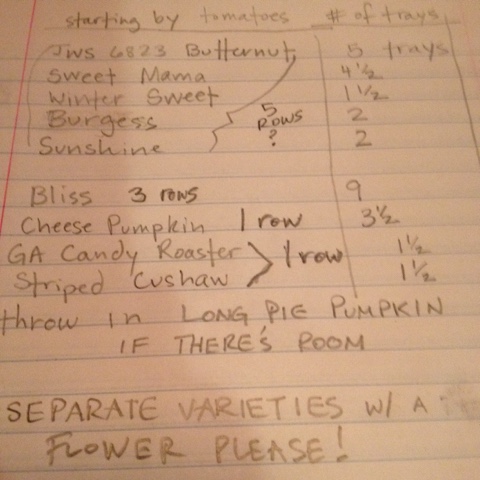 starting by tomatoes # of trays
JWS 6823 Butternut 5 trays
Sweet Mama 4 1/2
Winter Sweet 1 1/2
Burgess 5 ROWS ? 2
Sunshine 2
Bliss 3 rows 9
Cheese Pumpkin 1 row 3 1/2
GA Candy Roaster 1 row 1 1/2
Striped Cushaw 1 1/2
throw in LONG PIE PUMPKIN
IF THERE'S ROOM
SEPARATE VARIETIES W/ A
FLOWER PLEASE!